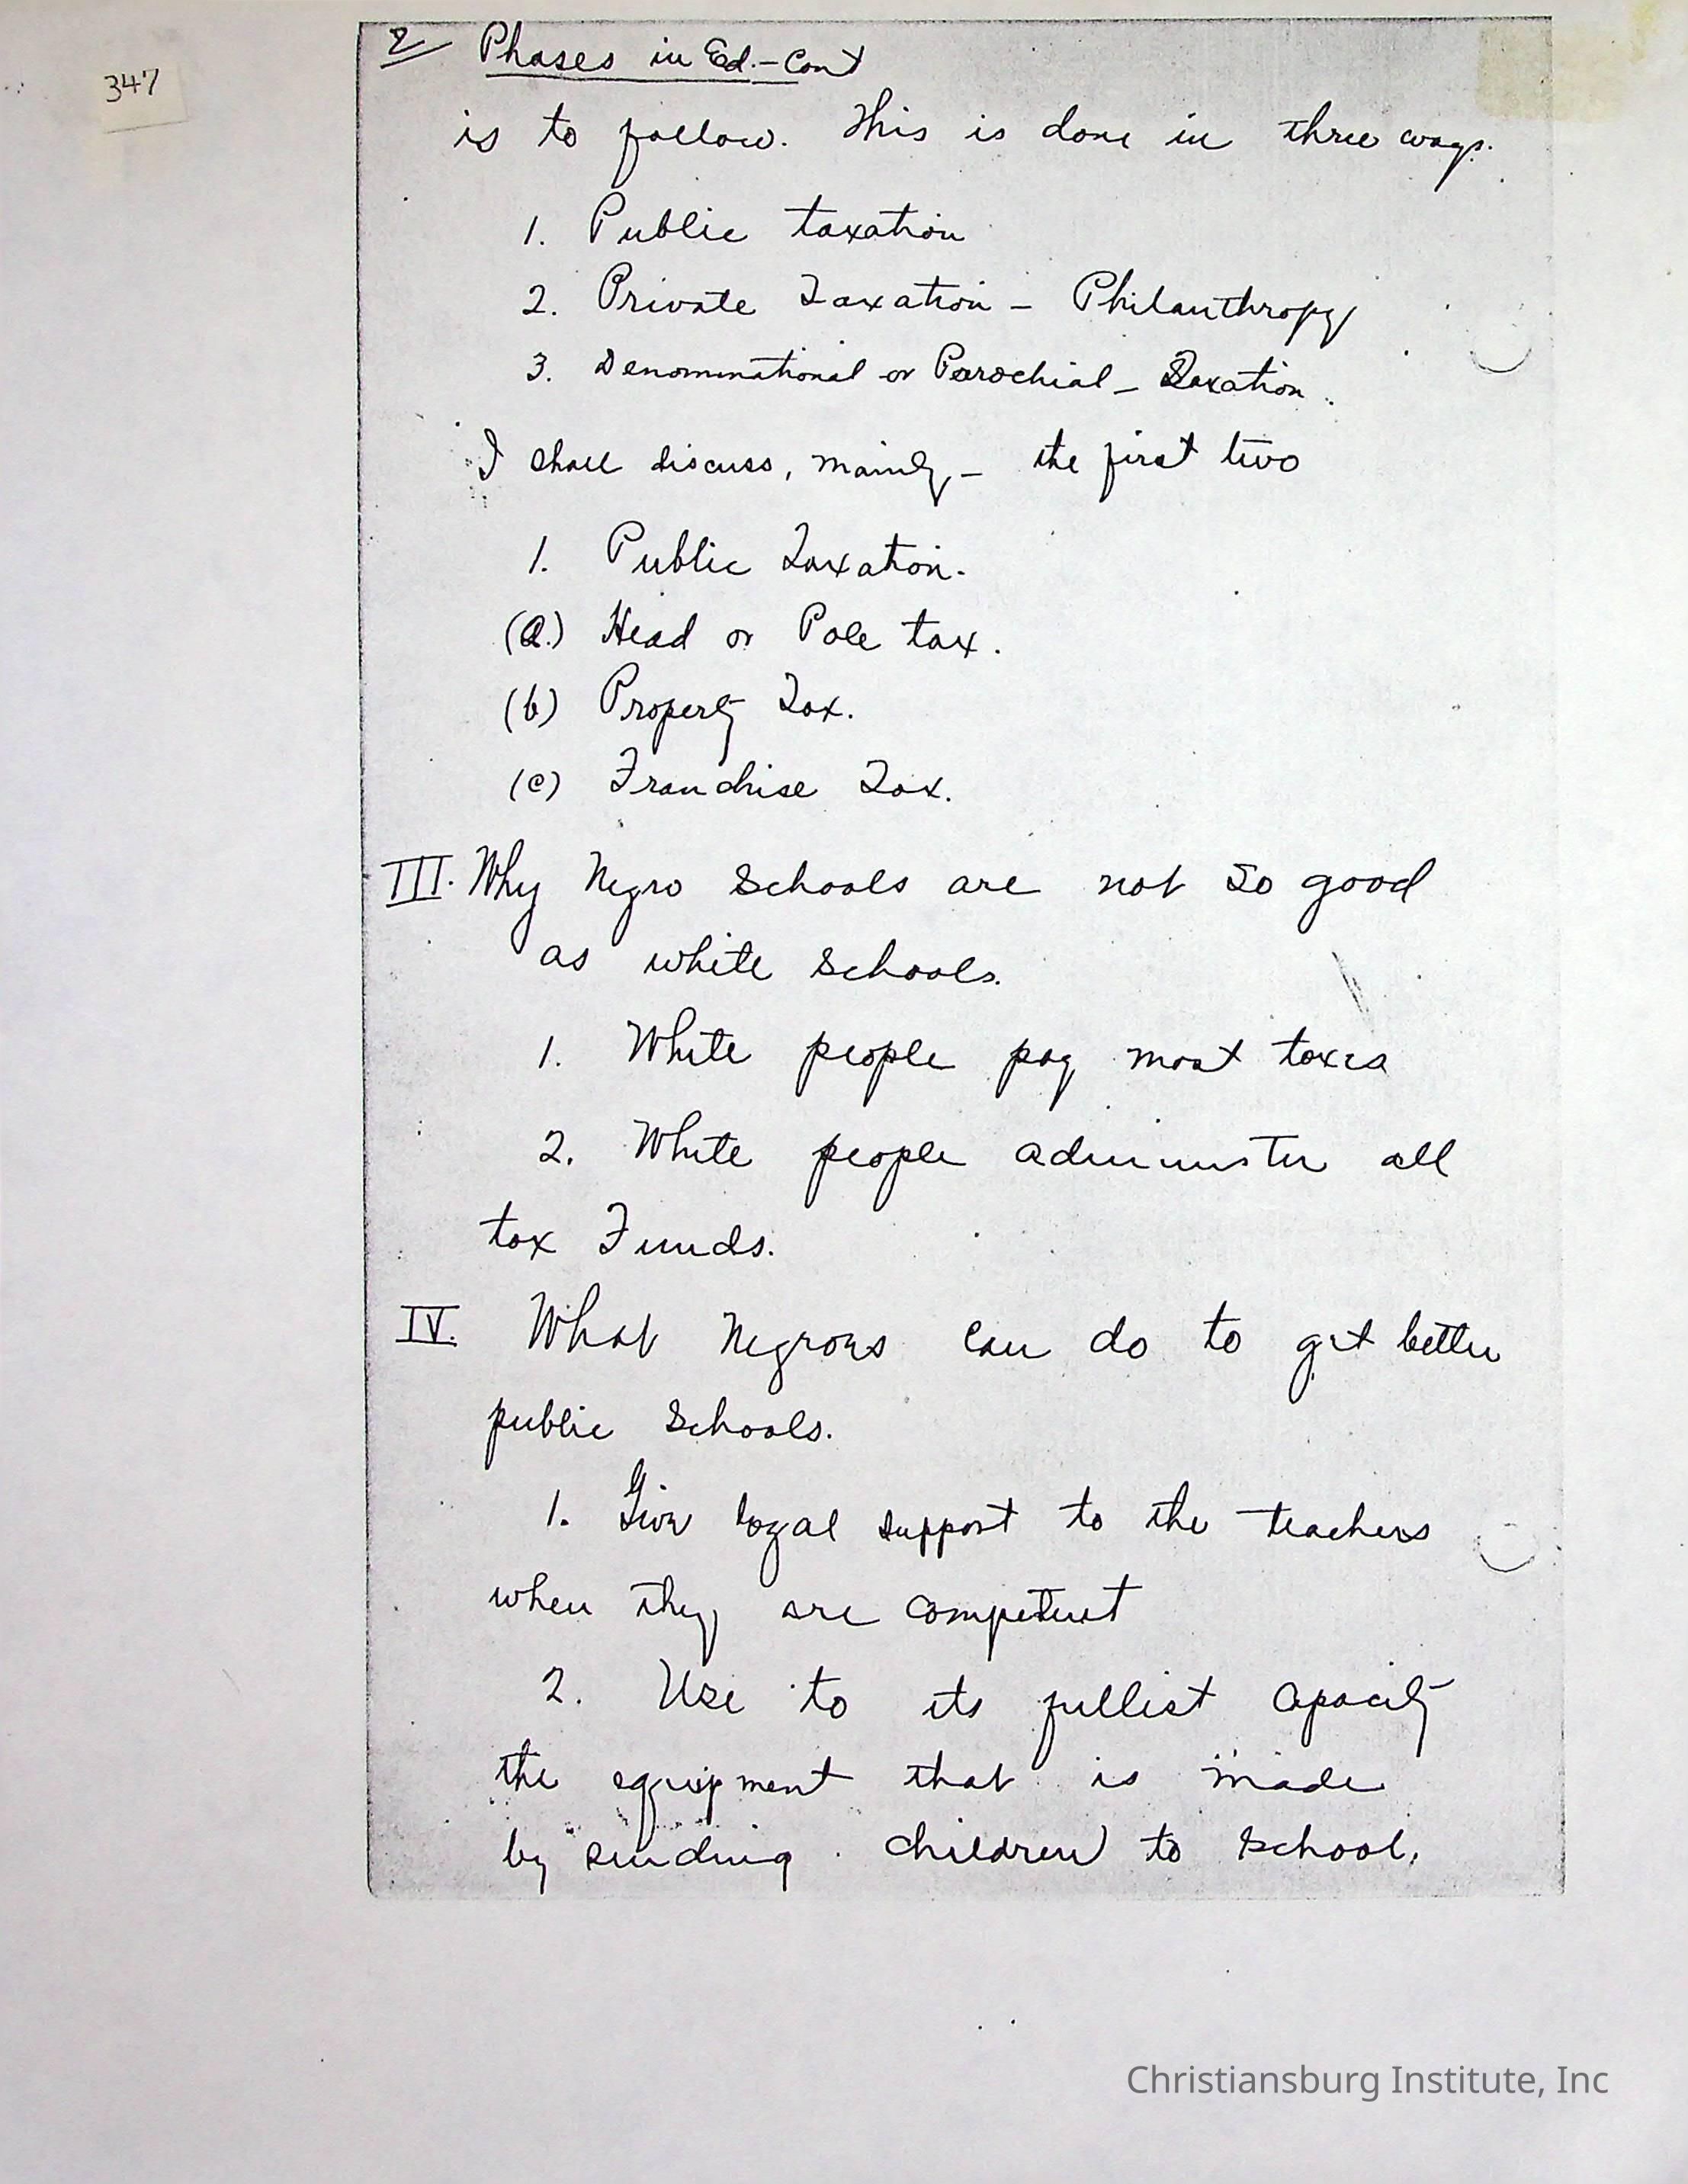 347
2 Phases in Ed.-Cont
is to follow. This is done in three ways.
1. Public taxation
2. Private Taxation - Philanthropy
3. Denominational or Parochial - Taxation.
I shall discuss, mainly - the first two
1. Public Taxation.
(a.) Head or Pole tax.
(b) Property Tax.
(c) Franchise Tax.
III. Why Negro Schools are not so good
as white schools.
1. White people pay most taxes
2. White people administer all
tax Funds.
IV. What Negroes can do to get better
public schools.
1. Give loyal support to the teachers
when they are competent
2. Use to its fullest capacity
the equipment that is made
by sending children to school.
Christiansburg Institute, Inc